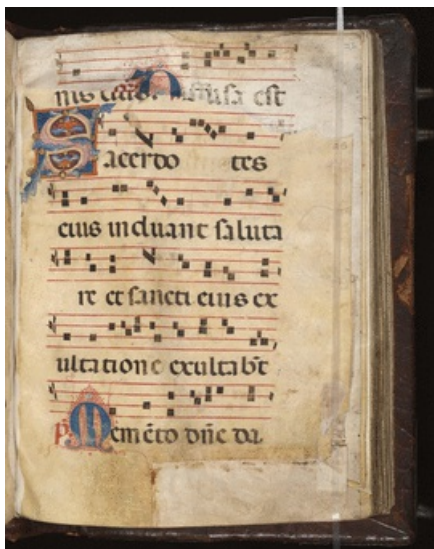 est
Sacerdo tes
eius induant saluta
re et sancti eius ex
ultatione exultabt
p̃ Mem̃eto dñe da